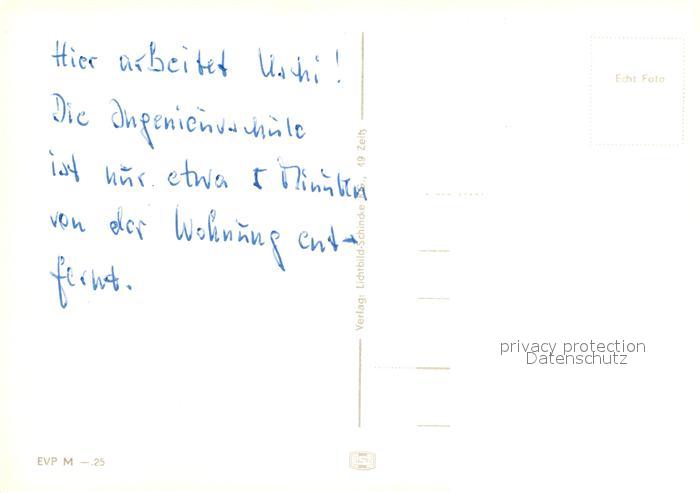 Hier arbeitet Uschi!
Die Ingenieurschule
ist nur etwa 5 Minuten
von der Wohnung ent-
fernt.
Echt Foto
Verlag: Lichtbild-Schincke KG., 49 Zeitz
privacy protection
Datenschutz
EVP M —.25